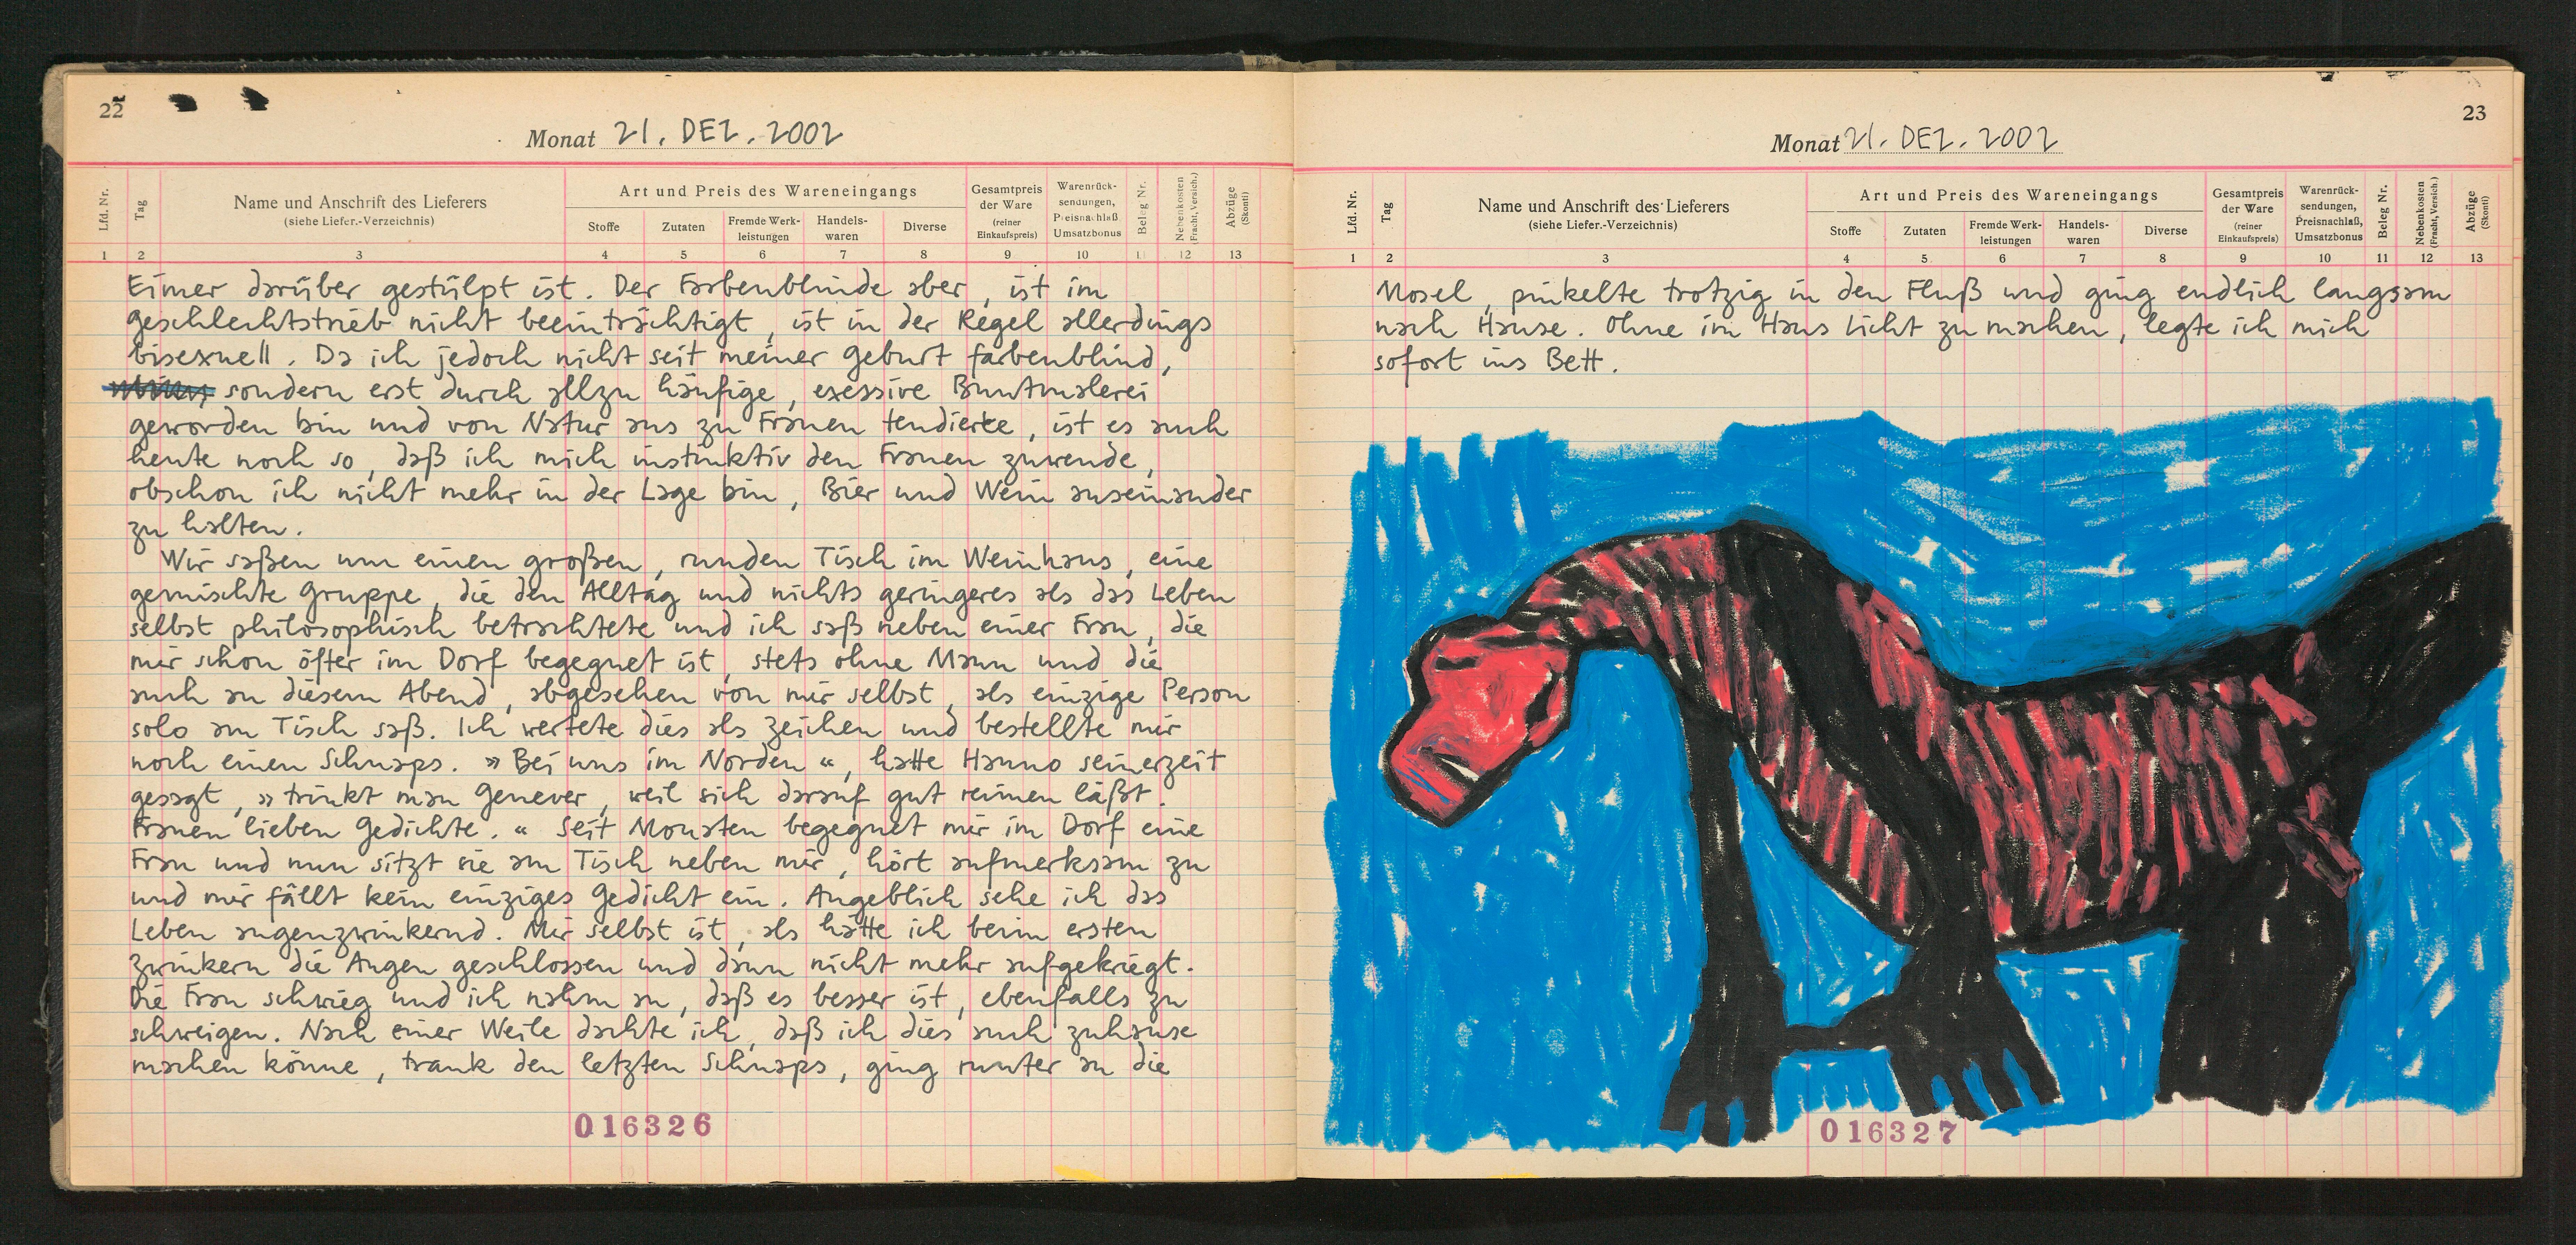 22
Monat 21. DEZ. 2002
Lfd. Nr.
Tag
Name und Anschrift des Lieferers
(siehe Liefer.-Verzeichnis)
Art und Preis des Wareneingangs
Stoffe
Zutaten
Fremde Werk-
leistungen
Handels-
waren
Diverse
Gesamtpreis
der Ware
(reiner
Einkaufspreis)
Warenrück-
sendungen,
Preisnachlaß
Umsatzbonus
Beleg Nr.
Nebenkosten
(Fracht, Versich.)
Abzüge
(Skonti)
1 2 3 4 5 6 7 8 9 10 11 12 13
Eimer darüber gestülpt ist. Der Farbenblinde aber, ist im
Geschlechtstrieb nicht beeinträchtigt, ist in der Regel allerdings
bisexuell. Da ich jedoch nicht seit meiner Geburt farbenblind,
sondern erst durch allzu häufige, exessive Buntmalerei
geworden bin und von Natur aus zu Frauen tendierte, ist es auch
heute noch so, daß ich mich instinktiv den Frauen zuwende,
obschon ich nicht mehr in der Lage bin, Bier und Wein auseinander
zu halten.
Wir saßen um einen großen, runden Tisch im Weinhaus, eine
gemischte Gruppe, die den Alltag und nichts geringeres als das Leben
selbst philosophisch betrachtete und ich saß neben einer Frau, die
mir schon öfter im Dorf begegnet ist, stets ohne Mann und die
auch an diesem Abend, abgesehen von mir selbst, als einzige Person
solo am Tisch saß. Ich wertete dies als Zeichen und bestellte mir
noch einen Schnaps. » Bei uns im Norden «, hatte Hanno seinerzeit
gesagt, » trinkt man Genever, weil sich darauf gut reimen läßt.
Frauen lieben Gedichte. « Seit Monaten begegnet mir im Dorf eine
Frau und nun sitzt sie am Tisch neben mir, hört aufmerksam zu
und mir fällt kein einziges Gedicht ein. Angeblich sehe ich das
Leben augenzwinkernd. Mir selbst ist, als hätte ich beim ersten
Zwinkern die Augen geschlossen und dann nicht mehr aufgekriegt.
Die Frau schwieg und ich nahm an, daß es besser ist, ebenfalls zu
schweigen. Nach einer Weile dachte ich, daß ich dies auch zuhause
machen könne, trank den letzten Schnaps, ging runter an die
016326
23
Monat 21. DEZ. 2002
Lfd. Nr.
Tag
Name und Anschrift des Lieferers
(siehe Liefer.-Verzeichnis)
Art und Preis des Wareneingangs
Stoffe
Zutaten
Fremde Werk-
leistungen
Handels-
waren
Diverse
Gesamtpreis
der Ware
(reiner
Einkaufspreis)
Warenrück-
sendungen,
Preisnachlaß,
Umsatzbonus
Beleg Nr.
Nebenkosten
(Fracht, Versich.)
Abzüge
(Skonti)
1 2 3 4 5 6 7 8 9 10 11 12 13
Mosel, pinkelte trotzig in den Fluß und ging endlich langsam
nach Hause. Ohne im Haus Licht zu machen, legte ich mich
sofort ins Bett.
016327